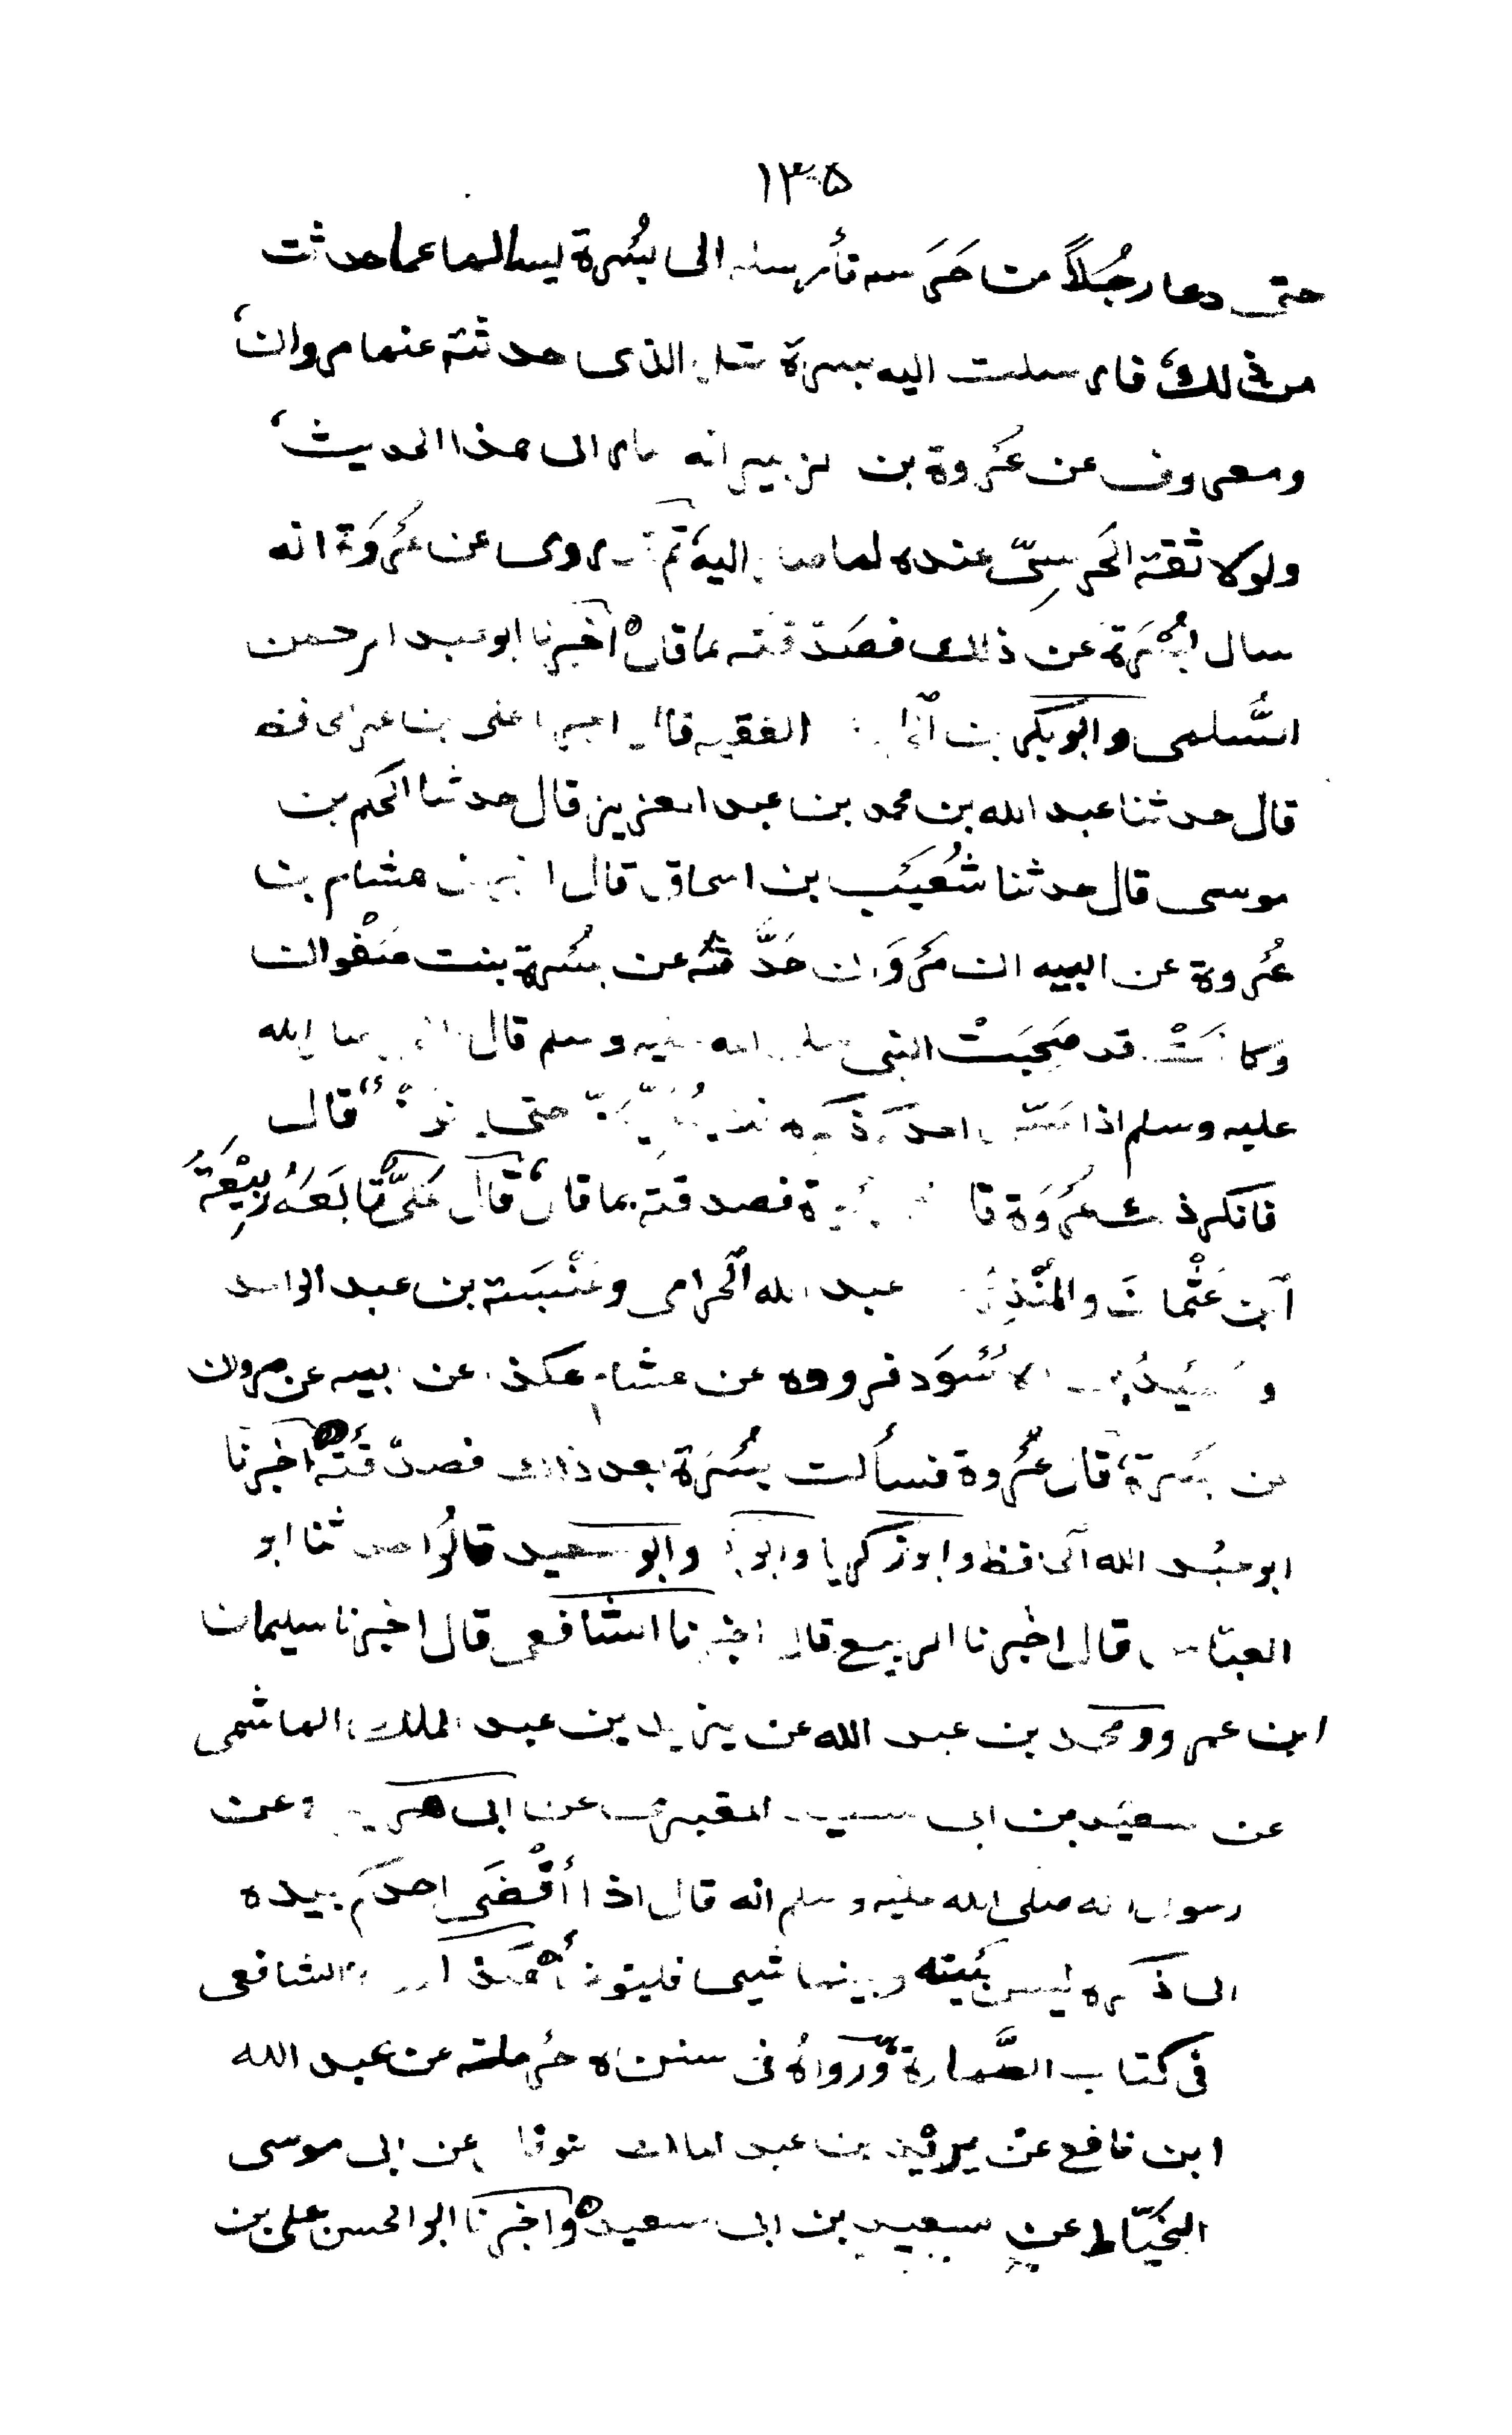 ١٣٥
حتى دعا رجُلاً من حَرَسه فأرسله الى بُسْرة يسالها عما حدثت
من ذلك فارسلت اليه بسرة مثل الذى حدثته عنها مروان
ومعروف عن عُروة بن الزبير انه صار الى هذا الحديث
ولولا ثقة الحَرسِىّ عنده لما صار اليه ثم روى عن عُروَة انه
سال بُسْرَة عن ذلك فصَدّقته بما قال اخبرنا ابو عبد الرحمن
السُّلمى وابو بكر بن الفقيه قالا اخبرنا على بن عمر الحافظ
قال حدثنا عبد الله بن محمد بن عبد العزيز قال حدثنا الحكم بن
موسى قال حدثنا شُعَيْب بن اسحاق قال اخبرنى هشام بن
عُروة عن ابيه ان مَروَان حَدَّثه عن بُسْرة بنت صَفْوان
وكانَتْ قد صَحِبَتْ النبى صلى الله عليه وسلم قال النبى صلى الله
عليه وسلم اذا مَسّ احدكم ذكره حتى قال
فانكر ذلك عُروَة فصدقته بما قال قال عَلىّ تابَعَهُ رَبِيْعَةُ
ابن عُثْمانَ والمُنْذِرُ عبد الله الحزامى وعَنْبَسَة بن عبد الواحد
وحُمَيْدُ بن الاَسْوَد فرووه عن هشام هكذا عن ابيه عن مروان
عن بُسْرة قال عُروة فسألت بُسْرَة بعد ذلك فصدّقَتْه اخبرنا
ابو عبْد الله الحافظ وابو زكريا وابو وابو سعيد قالُوا حدثنا ابو
العبّاس قال اخبرنا الربيع قال اخبرنا الشافعى قال اخبرنا سليمان
ابن عمرو ومحمد بن عبد الله عن يزيد بن عبد الملك الهاشمى
عن سعيد بن ابى سعيد المقبرى عن ابى هريرة عن
رسول الله صلى الله عليه وسلم انه قال اذا أَفْضَى احدكم بيده
الى ذكره ليس بَيْنه وبينها شيى فليتوضأ هكذا الشافعى
فى كتاب الطَّهارة ورواهُ فى سنن حَرملة عن عبد الله
ابن نافع عن يزيد بن عبد الملك عن ابى موسى
الخيّاط عن سعيد بن ابى سعيد واخبرنا ابو الحسن على بن